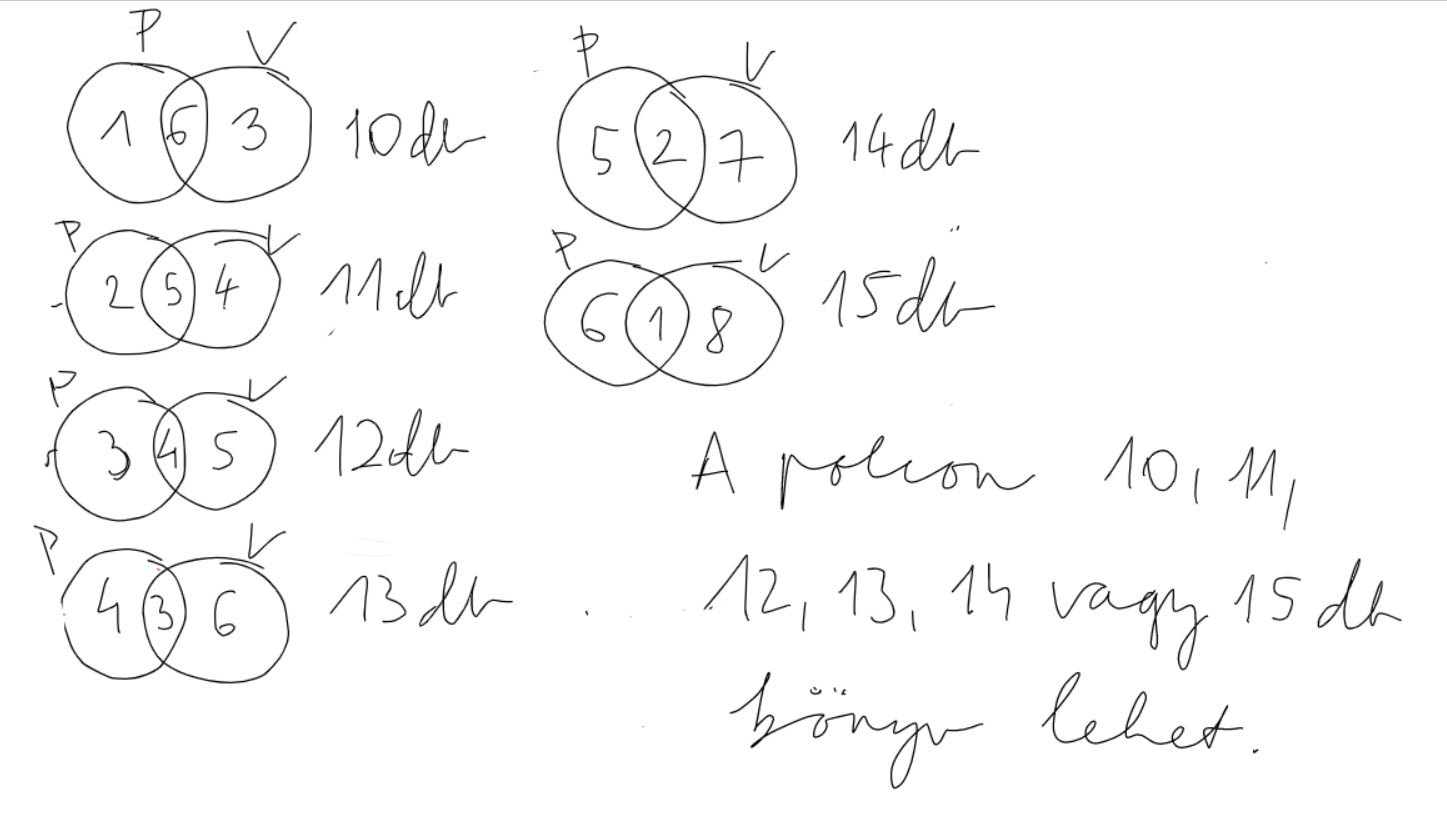 P V
1 6 3 10 db
P V
2 5 4 11 db
P V
3 4 5 12 db
P V
4 3 6 13 db
P V
5 2 7 14 db
P V
6 1 8 15 db
A polcon 10, 11,
12, 13, 14 vagy 15 db
könyv lehet.